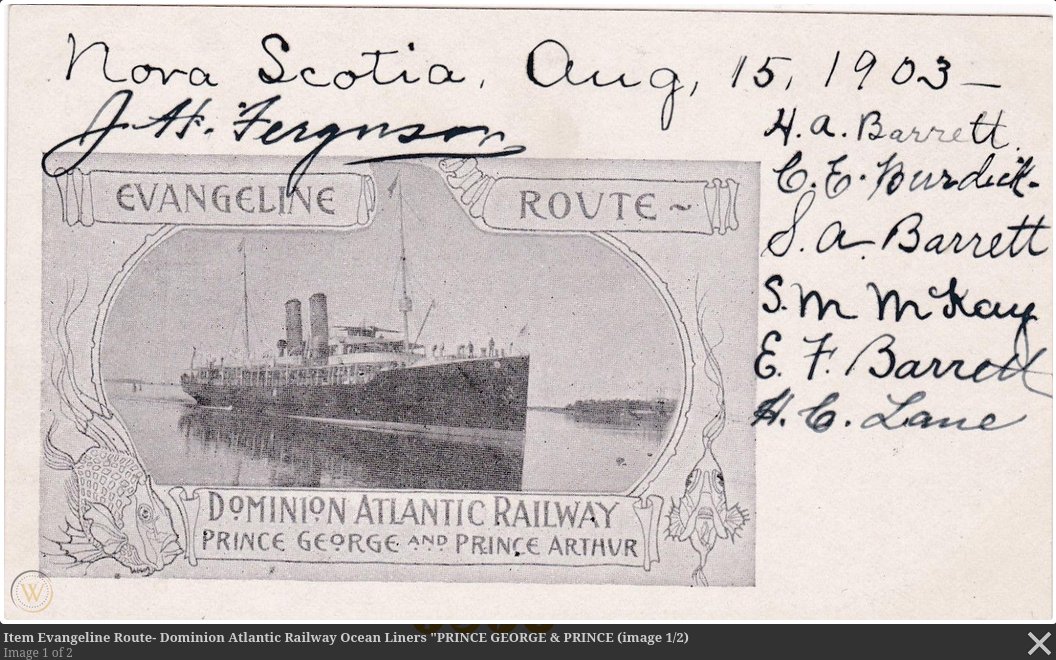 Nova Scotia, Aug, 15, 1903 —
J. H. Ferguson
H. A. Barrett.
C. E. Burdick.
S. A. Barrett
S. M McKay
E. F. Barrett
H. C. Lane
EVANGELINE
ROUTE ~
DOMINION ATLANTIC RAILWAY
PRINCE GEORGE AND PRINCE ARTHUR
W
Item Evangeline Route- Dominion Atlantic Railway Ocean Liners "PRINCE GEORGE & PRINCE (image 1/2)
Image 1 of 2